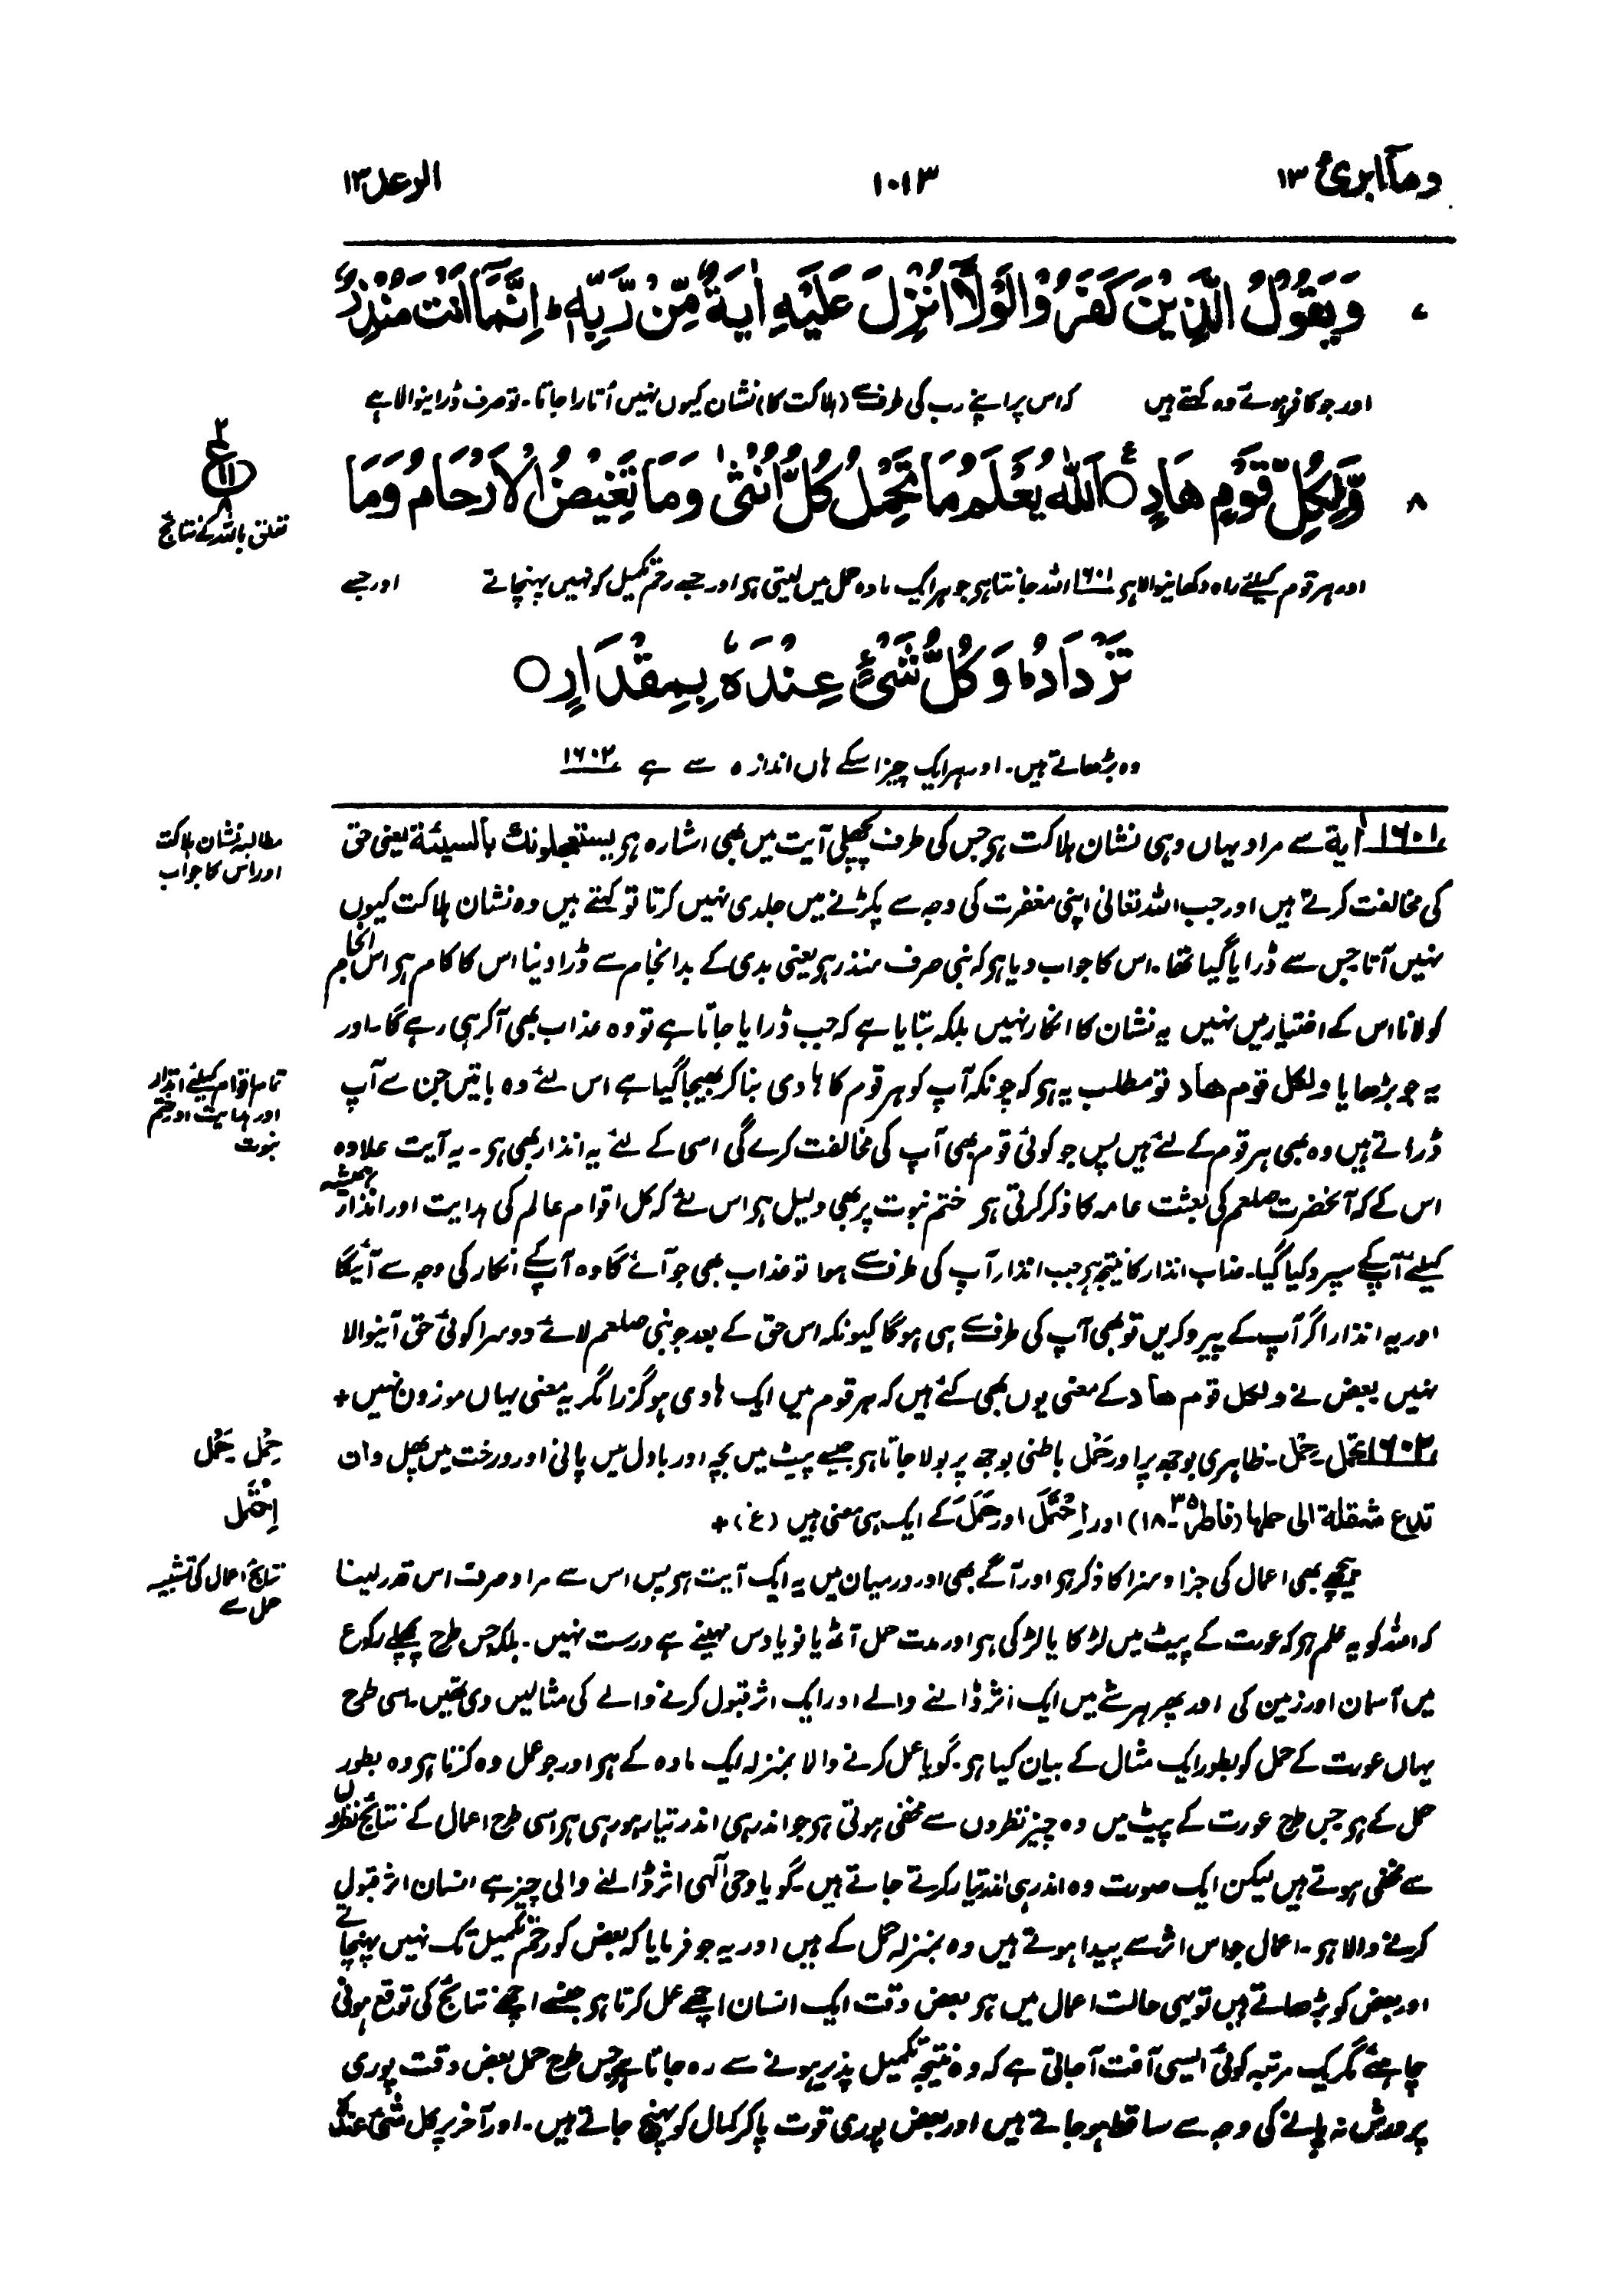 ومآ ابرئ ١٣
١٠١٣
الرعد ١٣
٧ وَيَقُوْلُ الَّذِيْنَ كَفَرُوْا لَوْلَآ اُنْزِلَ عَلَيْهِ اٰيَةٌ مِّنْ رَّبِّهٖ ؕ اِنَّمَآ اَنْتَ مُنْذِرٌ
اور جو کافر ہوئے وہ کہتے ہیں کہ اس پر اپنے رب کی طرف سے (ہلاکت کا) نشان کیوں نہیں اُتارا جاتا۔ تو صرف ڈرانیوالا ہے
٨ وَّلِكُلِّ قَوْمٍ هَادٍ ○ اَللّٰهُ يَعْلَمُ مَا تَحْمِلُ كُلُّ اُنْثٰى وَمَا تَغِيْضُ الْاَرْحَامُ وَمَا
٢
ع
١١
٨
تعلق باللہ کے نتائج
اور ہر قوم کیلئے راہ دکھانیوالا ہو ۱۶۰۱ اللہ جانتا ہو جو ہر ایک مادہ حمل میں لیتی ہو اور جسے رحم تکمیل کو نہیں پہنچاتے اور جسے
تَزْدَادُ ؕ وَكُلُّ شَىْءٍ عِنْدَهٗ بِمِقْدَارٍ ○
وہ بڑھاتے ہیں۔ اور ہر ایک چیز اسکے ہاں اندازہ سے ہے ۱۶۰۲
مطالبہ نشان ہلاکت
اور اس کا جواب
۱۶۰۱ اٰیة سے مراد یہاں وہی نشان ہلاکت ہو جس کی طرف پچھلی آیت میں بھی اشارہ ہو یستعجلونك بالسیئة یعنی حق
کی مخالفت کرتے ہیں اور جب اللہ تعالیٰ اپنی مغفرت کی وجہ سے پکڑنے میں جلدی نہیں کرتا تو کہتے ہیں وہ نشان ہلاکت کیوں
نہیں آتا جس سے ڈرایا گیا تھا۔ اس کا جواب دیا ہو کہ نبی صرف منذر ہو یعنی بدی کے بد انجام سے ڈرا دینا اس کا کام ہو اس انجام
کو لانا اس کے اختیار میں نہیں یہ نشان کا انکار نہیں بلکہ بتایا ہے کہ جب ڈرایا جاتا ہے تو وہ عذاب بھی آکر ہی رہے گا۔ اور
تمام اقوام کیلئے انذار
اور ہدایت اور ختم
نبوت
یہ جو بڑھایا ولکل قوم ھاد تو مطلب یہ ہو کہ چونکہ آپ کو ہر قوم کا ہادی بنا کر بھیجا گیا ہے اس لئے وہ باتیں جن سے آپ
ڈراتے ہیں وہ بھی ہر قوم کے لئے ہیں پس جو کوئی قوم بھی آپ کی مخالفت کرے گی اسی کے لئے یہ انذار بھی ہو۔ یہ آیت علاوہ
اس کے کہ آنحضرت صلعم کی بعثت عامہ کا ذکر کرتی ہو ختم نبوت پر بھی دلیل ہو اس لئے کہ کل اقوام عالم کی ہدایت اور انذار ہمیشہ
کیلئے آپ کے سپرد کیا گیا۔ عذاب انذار کا نتیجہ ہو جب انذار آپ کی طرف سے ہوا تو عذاب بھی جو آئے گا وہ آپ کے انکار کی وجہ سے آئیگا
اور یہ انذار اگر آپ کے پیرو کریں تو بھی آپ کی طرف سے ہی ہو گا کیونکہ اس حق کے بعد جو نبی صلعم لائے دوسرا کوئی حق آنیوالا
نہیں بعض نے ولکل قوم ھاد کے معنی یوں بھی کئے ہیں کہ ہر قوم میں ایک ہادی ہو گزرا مگر یہ معنی یہاں موزون نہیں +
حِمْل حَمْل
اِحْتَمَل
۱۶۰۲ تحمل۔ حِمْل۔ ظاہری بوجھ پر اور حَمْل باطنی بوجھ پر بولا جاتا ہو جیسے پیٹ میں بچہ اور بادل میں پانی اور درخت میں پھل وان
تدع مثقلة الی حملها (فاطر ۳۵۔۱۸) اور اِحْتَمَلَ اور حَمَلَ کے ایک ہی معنی ہیں (غ) +
نتائج اعمال کی تشبیہ
حمل سے
پیچھے بھی اعمال کی جزا و سزا کا ذکر ہو اور آگے بھی اور درمیان میں یہ ایک آیت ہو پس اس سے مراد صرف اس قدر لینا
کہ اللہ کو یہ علم ہو کہ عورت کے پیٹ میں لڑکا یا لڑکی ہو اور مدت حمل آٹھ یا نو یا دس مہینے ہے درست نہیں۔ بلکہ جس طرح پچھلے رکوع
میں آسمان اور زمین کی اور پھر ہر شے میں ایک اثر ڈالنے والے اور ایک اثر قبول کرنے والے کی مثالیں دی تھیں۔ اسی طرح
یہاں عورت کے حمل کو بطور ایک مثال کے بیان کیا ہو۔ گویا عمل کرنے والا بمنزلہ ایک مادہ کے ہو اور جو عمل وہ کرتا ہو وہ بطور
حمل کے ہو جس طرح عورت کے پیٹ میں وہ چیز نظروں سے مخفی ہوتی ہو جو اندر ہی اندر تیار ہو رہی ہو اسی طرح اعمال کے نتائج نظروں
سے مخفی ہوتے ہیں لیکن ایک صورت وہ اندر ہی اندر تیار کرتے جاتے ہیں۔ گویا وحی الٰہی اثر ڈالنے والی چیز ہے انسان اثر قبول
کرنے والا ہو۔ اعمال جو اس اثر سے پیدا ہوتے ہیں وہ بمنزلہ حمل کے ہیں اور یہ جو فرمایا کہ بعض کو رحم تکمیل تک نہیں پہنچاتے
اور بعض کو بڑھاتے ہیں تو یہی حالت اعمال میں ہو بعض وقت ایک انسان اچھے عمل کرتا ہو جنسے اچھے نتائج کی توقع ہونی
چاہئے مگر یک مرتبہ کوئی ایسی آفت آجاتی ہے کہ وہ نتیجہ تکمیل پذیر ہونے سے رہ جاتا ہو جس طرح حمل بعض وقت پوری
پرورش نہ پانے کی وجہ سے ساقط ہو جاتے ہیں اور بعض پوری قوت پاکر کمال کو پہنچ جاتے ہیں۔ اور آخر پر کل شیٔ عندہ